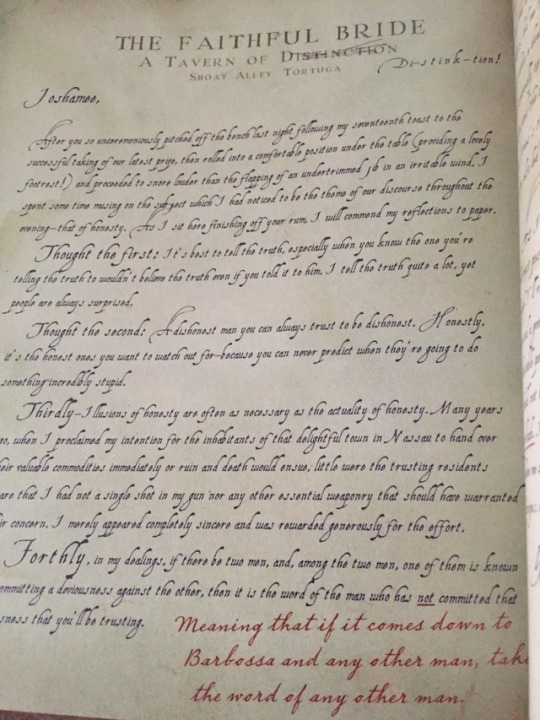 THE FAITHFUL BRIDE
A TAVERN OF DISTINCTION
Di-stink-tion!
SBOAT ALLEY TORTUGA
Joshamee,
After you so unceremoniously pitched off the bench last night following my seventeenth toast to the
successful taking of our latest prize, then rolled into a comfortable position under the table (providing a lovely
footrest!) and proceeded to snore louder than the flapping of an undertrimmed jib in an irritable wind, I
spent some time musing on the subject which I had noticed to be the theme of our discourse throughout the
evening—that of honesty. As I sit here finishing off your rum, I will commend my reflections to paper.
Thought the first: It's best to tell the truth, especially when you know the one you're
telling the truth to wouldn't believe the truth even if you told it to him. I tell the truth quite a lot, yet
people are always surprised.
Thought the second: A dishonest man you can always trust to be dishonest. Honestly,
it's the honest ones you want to watch out for—because you can never predict when they're going to do
something incredibly stupid.
Thirdly—Illusions of honesty are often as necessary as the actuality of honesty. Many years
go, when I proclaimed my intention for the inhabitants of that delightful town in Nassau to hand over
eir valuable commodities immediately or ruin and death would ensue, little were the trusting residents
are that I had not a single shot in my gun nor any other essential weaponry that should have warranted
ir concern. I merely appeared completely sincere and was rewarded generously for the effort.
Forthly, in my dealings, if there be two men, and, among the two men, one of them is known
ommitting a deviousness against the other, then it is the word of the man who has not committed that
sness that you'll be trusting.
Meaning that if it comes down to
Barbossa and any other man, take
the word of any other man.